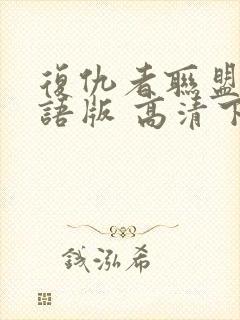 復仇者聯盟
語版 高清下
錢泓希